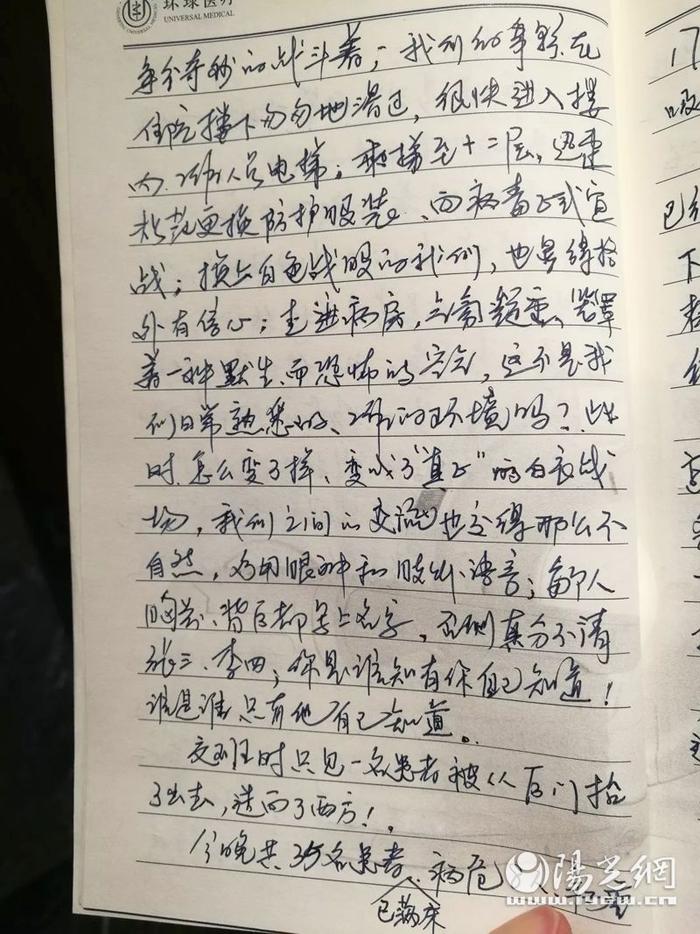 环球医疗
UNIVERSAL MEDICAL
争分夺秒的战斗着；我们的身影在
住院楼下匆匆地滑过，很快进入楼
内工作人员电梯；乘梯至十二层，迅速
更换防护服装、向病毒正式宣
战；换上白色战服的我们，也显得格
外有信心；走进病房，气氛凝重，笼罩
着一种默生、而恐怖的
们日常熟悉的、工作的环境吗？此
时怎么变了样、变成了“真正”的白衣战
场，我们之间的交流也变得那么不
自然，多用眼神和肢体语言；每个人
胸前、背后都写上名字，否则真分不清
张三、李四；你是谁只有你自己知道！
谁是谁只有他自己知道。
交班时只见一名患者被从后门抬
了出去，送向了西方！
今晚共35名患者、病危
已满床
17
吸
已经
下
陽光網